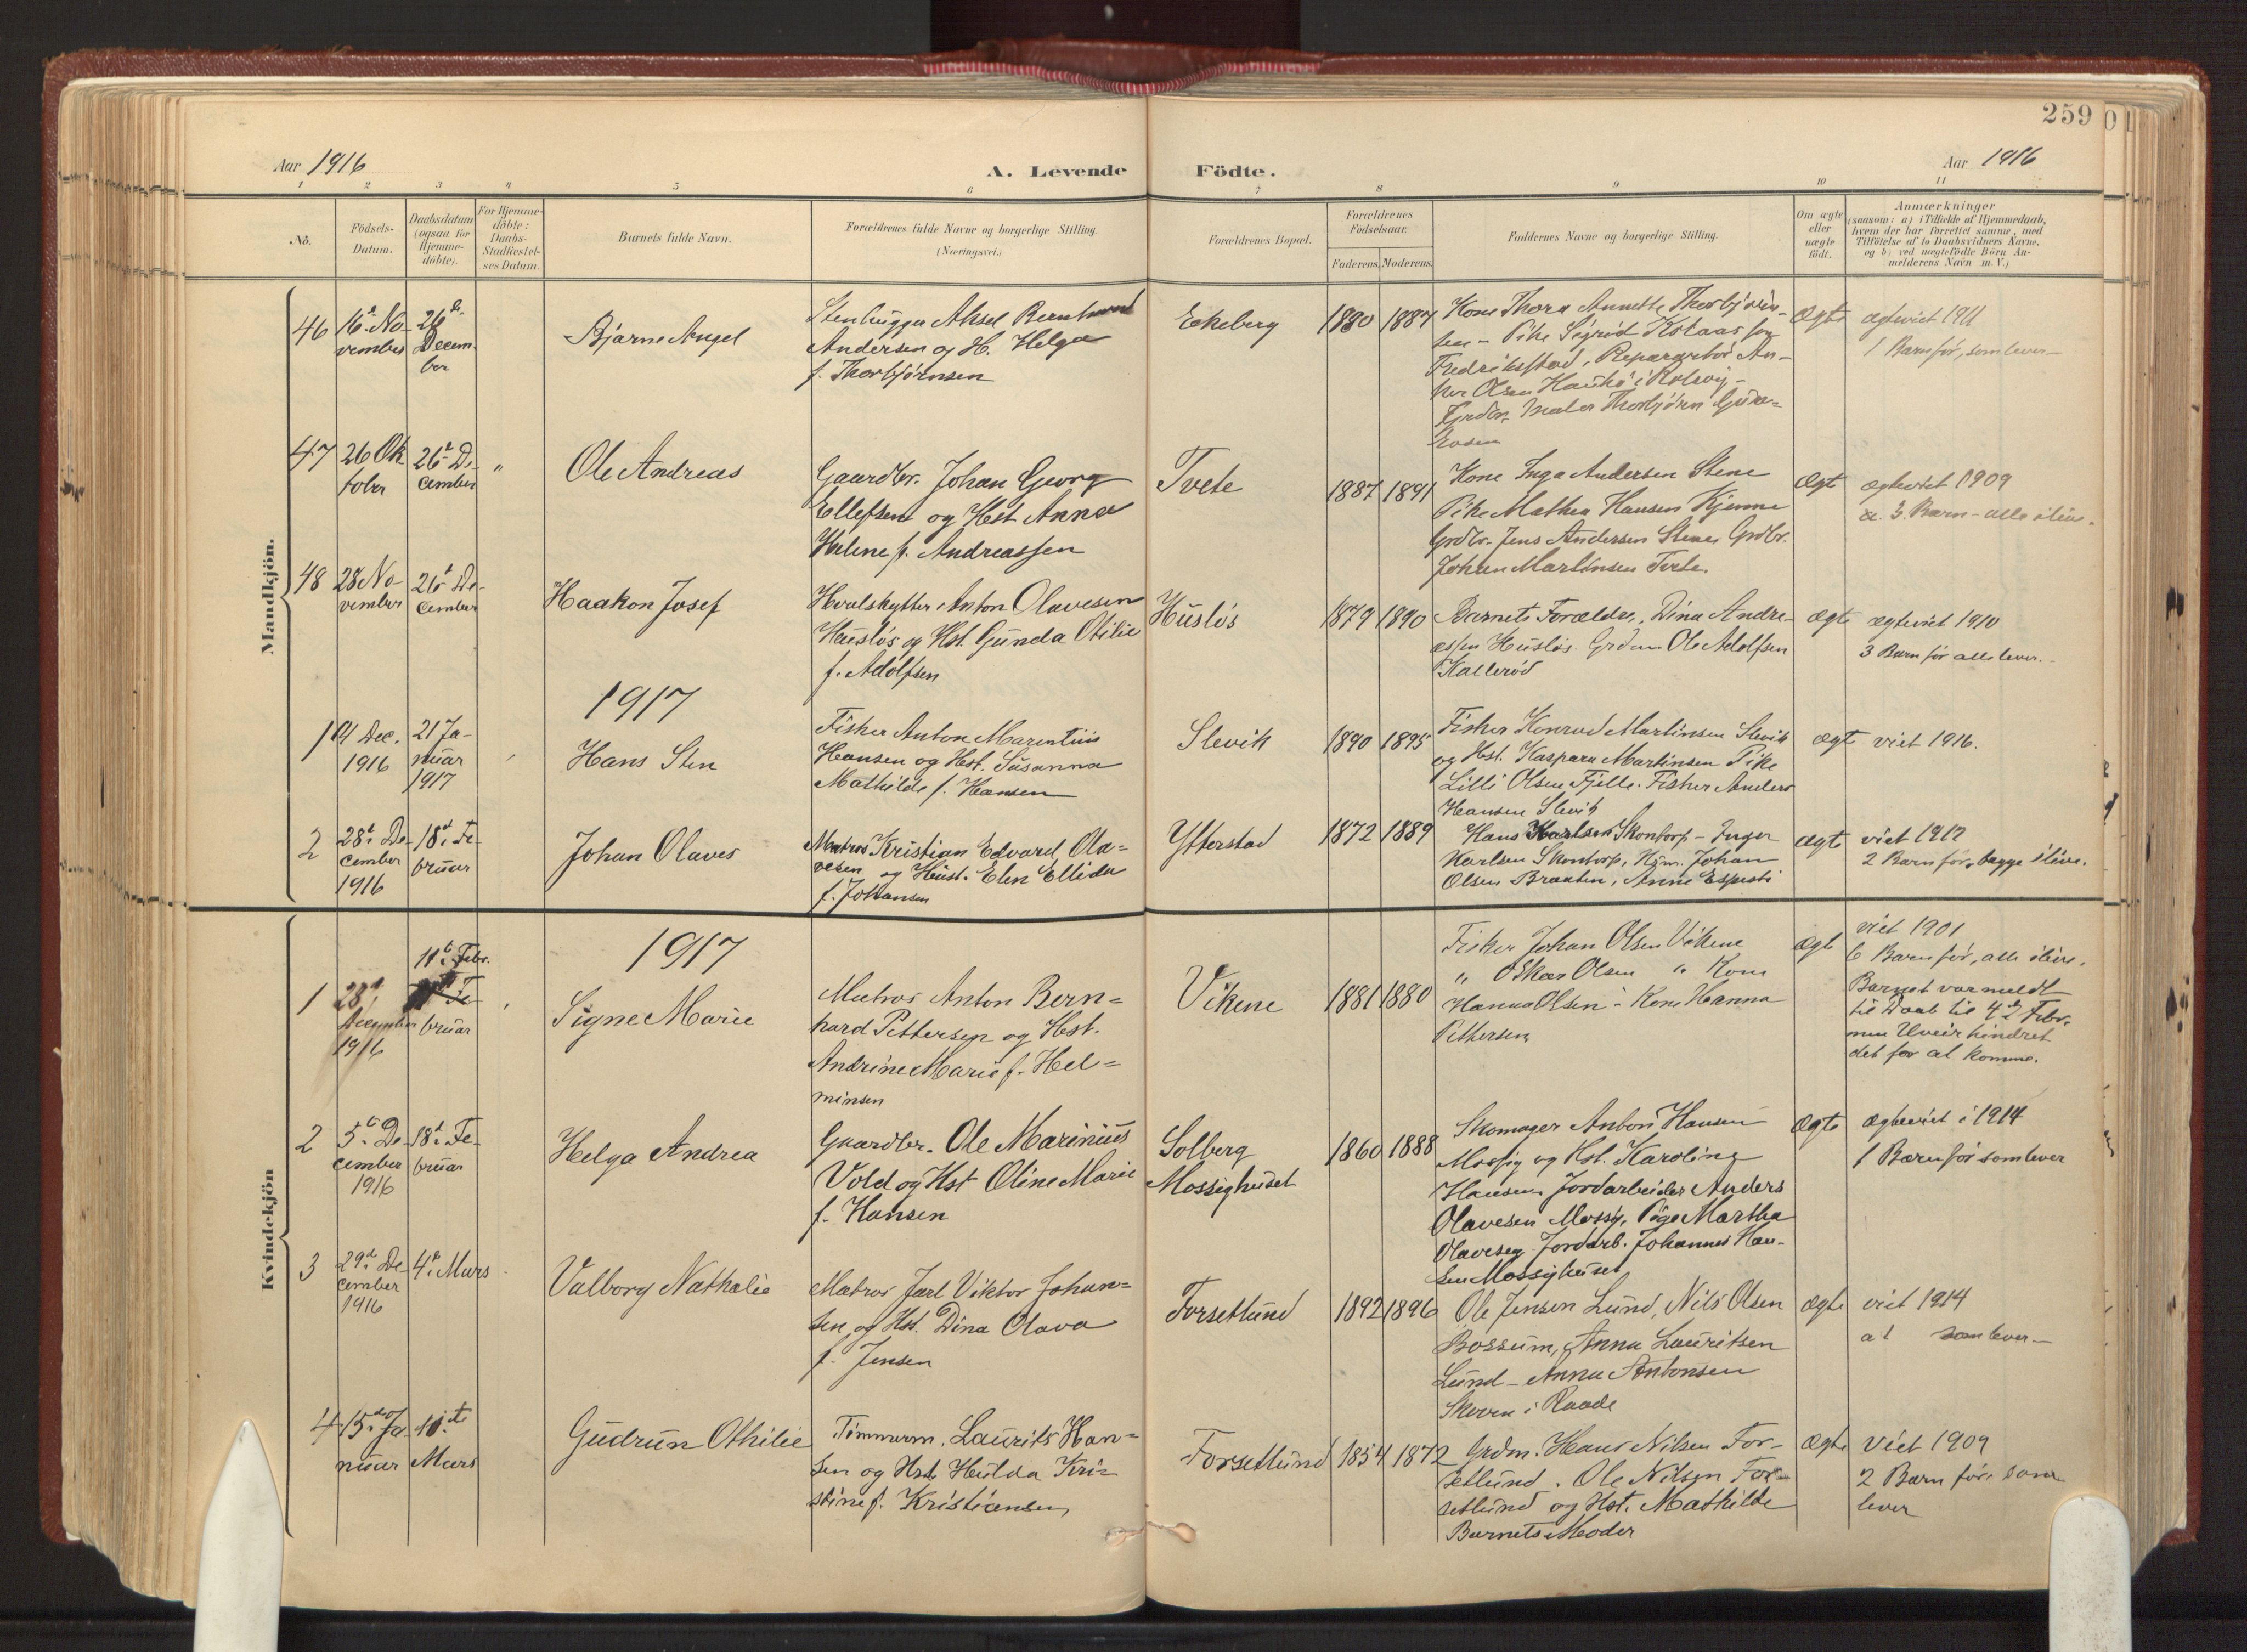 259
Aar 1916
A. Levende Födte.
Aar 1916
1 2 3 4 5 6 7 8 9 10 11
No.
Födsels-
Datum.
Daabsdatum
(ogsaa for
Hjemme-
döbte).
For Hjemme-
döbte:
Daabs-
Stadfæstel-
ses Datum.
Barnets fulde Navn.
Forældrenes fulde Navne og borgerlige Stilling.
(Næringsvei.)
Forældrenes Bopæl.
Forældrenes
Födselsaar.
Faderens. Moderens.
Faddernes Navne og borgerlige Stilling.
Om ægte
eller
uægte
födt.
Anmærkninger
(saasom: a) i Tilfælde af Hjemmedaab,
hvem der har forrettet samme, med
Tilföielse af to Daabsvidners Navne,
og b) ved uægtefödte Börn An-
melderens Navn m. V.)
Mandkjön.
46
16d No-
vember
26de
Decem-
ber
Bjarne Angel
Stenhugger Aksel Bernhard
Andersen og H. Helga
f. Thorbjørnsen
Ekeberg
1880 1887
Kone Thora Annette Thorbjörn-
sen - Pike Sigrid Kolaas fra
Fredrikstad, Reparatör
Olsen Hankö i
Maler Thorbjörn
ægte
ægteviet 1911
1 Barn før, som lever
47
26 Ok
tober
26d De-
cember
"
Ole Andreas
Gaardbr. Johan Georg
Ellefsen og Hst Anna
Helene f. Andreassen
Tvete
1887 1891
Kone Inga Andersen Stene
Pike Mathea Hansen Kjenne
Grdbr. Jens Andersen Stene, Grdbr.
Johan Martinsen Tvete.
ægte
ægteviet 1909
3 Barn - alle ilive.
48
28 No-
vember
26d De-
cember
Haakon Josef
Hvalskytter Anton Olavesen
Huslös og Hst. Gunda Otilie
f. Adolfsen
Huslös
1879 1890
Barnets Forældre, Dina Andre-
assen Huslös. Grdm Ole Adolfsen
Kallerød
ægte
ægteviet 1910
3 Barn før alle lever.
1917
1
14 Dec.
1916
21 Ja-
nuar
1917
Hans Sten
Fisker Anton Marentius
Hansen og Hst. Susanna
Mathilde f. Hansen
Slevik
1890 1895
Fisker Konrad Martinsen Slevik
og Hst. Kaspara Martinsen Pike
Lilli Olsen Fjelle. Fisker Anders
Hansen Slevik
ægte
viet 1916.
2
28d De-
cember
1916
18d Fe-
bruar
Johan Olaves
Matros Kristian Edvard Ola-
vesen og Hust. Elen Ellida
f. Johansen
Ytterstad
1872 1889
Hans Karlsen Skontorp - Inger
Karlsen Skontorp, Johan
Olsen Braaten, Anne
ægte
viet 1912
2 Barn før, begge ilive.
Kvindekjön
1917
1
28d
December
1916
11te Febr.
Fe-
bruar
Signe Marie
Matros Anton Bern-
hard Pettersen og Hst.
Andrine Marie f. Hel-
minsen
Vikene
1881 1880
Fisker Johan Olsen Vikene
" Oskar Olsen " Kone
Hanna Olsen - Kone Hanna
Pettersen
ægte
viet 1901
6 Barn før, alle ilive.
Barnet var meldt
til Daab til 4de Febr.
men Uveir hindret
det for at komme.
2
5te De-
cember
1916
18d Fe-
bruar
Helga Andrea
Gaardbr. Ole Marinius
Vold og Hst Oline Marie
f. Hansen
Solberg
Mossighuset
1860 1888
Skomager Anton Hansen
Mossig og Hst. Karoline
Hansen, Jordarbeider Anders
Olavesen Mossig, Pige Martha
Olavesen Jordarb. Johannes Han-
sen Mossighuset
ægte
ægteviet i 1914
1 Barn før som lever
3
29d De-
cember
1916
4de Mars
Valborg Nathalie
Matros Jarl Viktor Johan-
sen og Hst. Dina Olava
f. Jensen
Torsetlund
1892 1896
Ole Jensen Lund, Nils Olsen
Bossum, Anna Lauritsen
Lund - Anna Antonsen
i Raade
ægte
viet 1914
a 1 som lever
4
15de Ja-
nuar
11te
Mars
Gudrun Othilie
Tømmerm. Laurits Han-
sen og Hst. Hulda Kri-
stine f. Kristiansen
Torsetlund
1854 1872
Grdm. Hans Nilsen Tor-
setlund. Ole Nilsen Tor-
setlund og Hst. Mathilde
Barnets Moder
ægte
viet 1909
2 Barn før som
lever